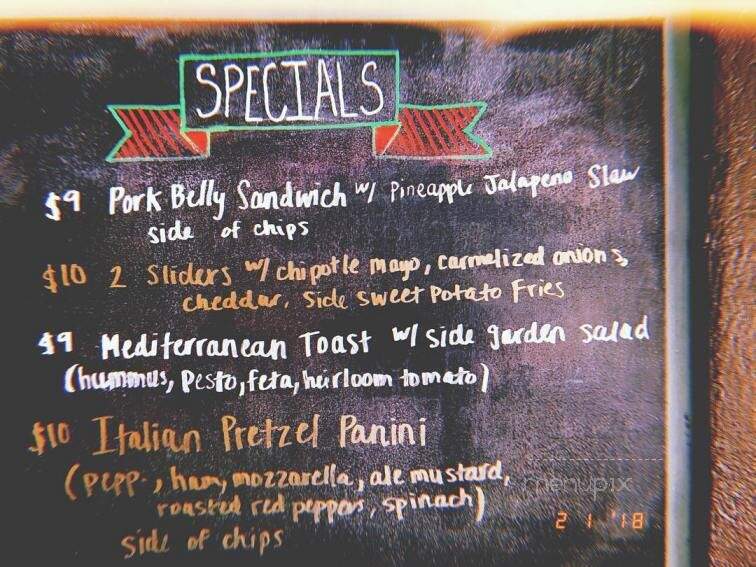 SPECIALS
$9 Pork Belly Sandwich w/ Pineapple Jalapeno Slaw
side of chips
$10 2 Sliders w/ chipotle mayo, carmelized onions,
cheddar. Side sweet Potato Fries
$9 Mediterranean Toast w/ side garden salad
(hummus, Pesto, feta, heirloom tomato)
$10 Italian Pretzel Panini
(pepp., ham, mozzarella, ale mustard,
roasted red peppers, spinach)
side of chips
menupix
2 1 '18